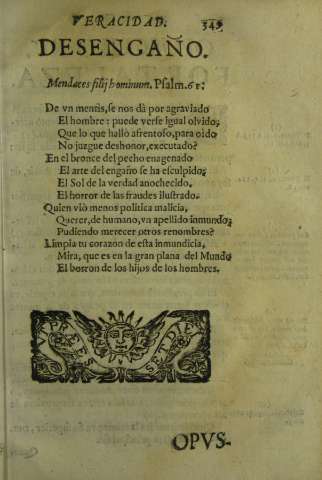 VERACIDAD. 349
DESENGAÑO.
Mendaces filij hominum. Psalm. 61:
De vn mentis, se nos dà por agraviado
El hombre: puede verse igual olvido,
Que lo que hallò afrentoso, para oido
No juzgue deshonor, executado?
En el bronce del pecho enagenado
El arte del engaño se ha esculpido;
El Sol de la verdad anochecido,
El horror de las fraudes ilustrado.
Quien viò menos politica malicia,
Querer, de humano, vn apellido inmundo,
Pudiendo merecer otros renombres?
Limpia tu corazon de esta inmundicia,
Mira, que es en la gran plana del Mundo
El borron de los hijos de los hombres.
OPVS-